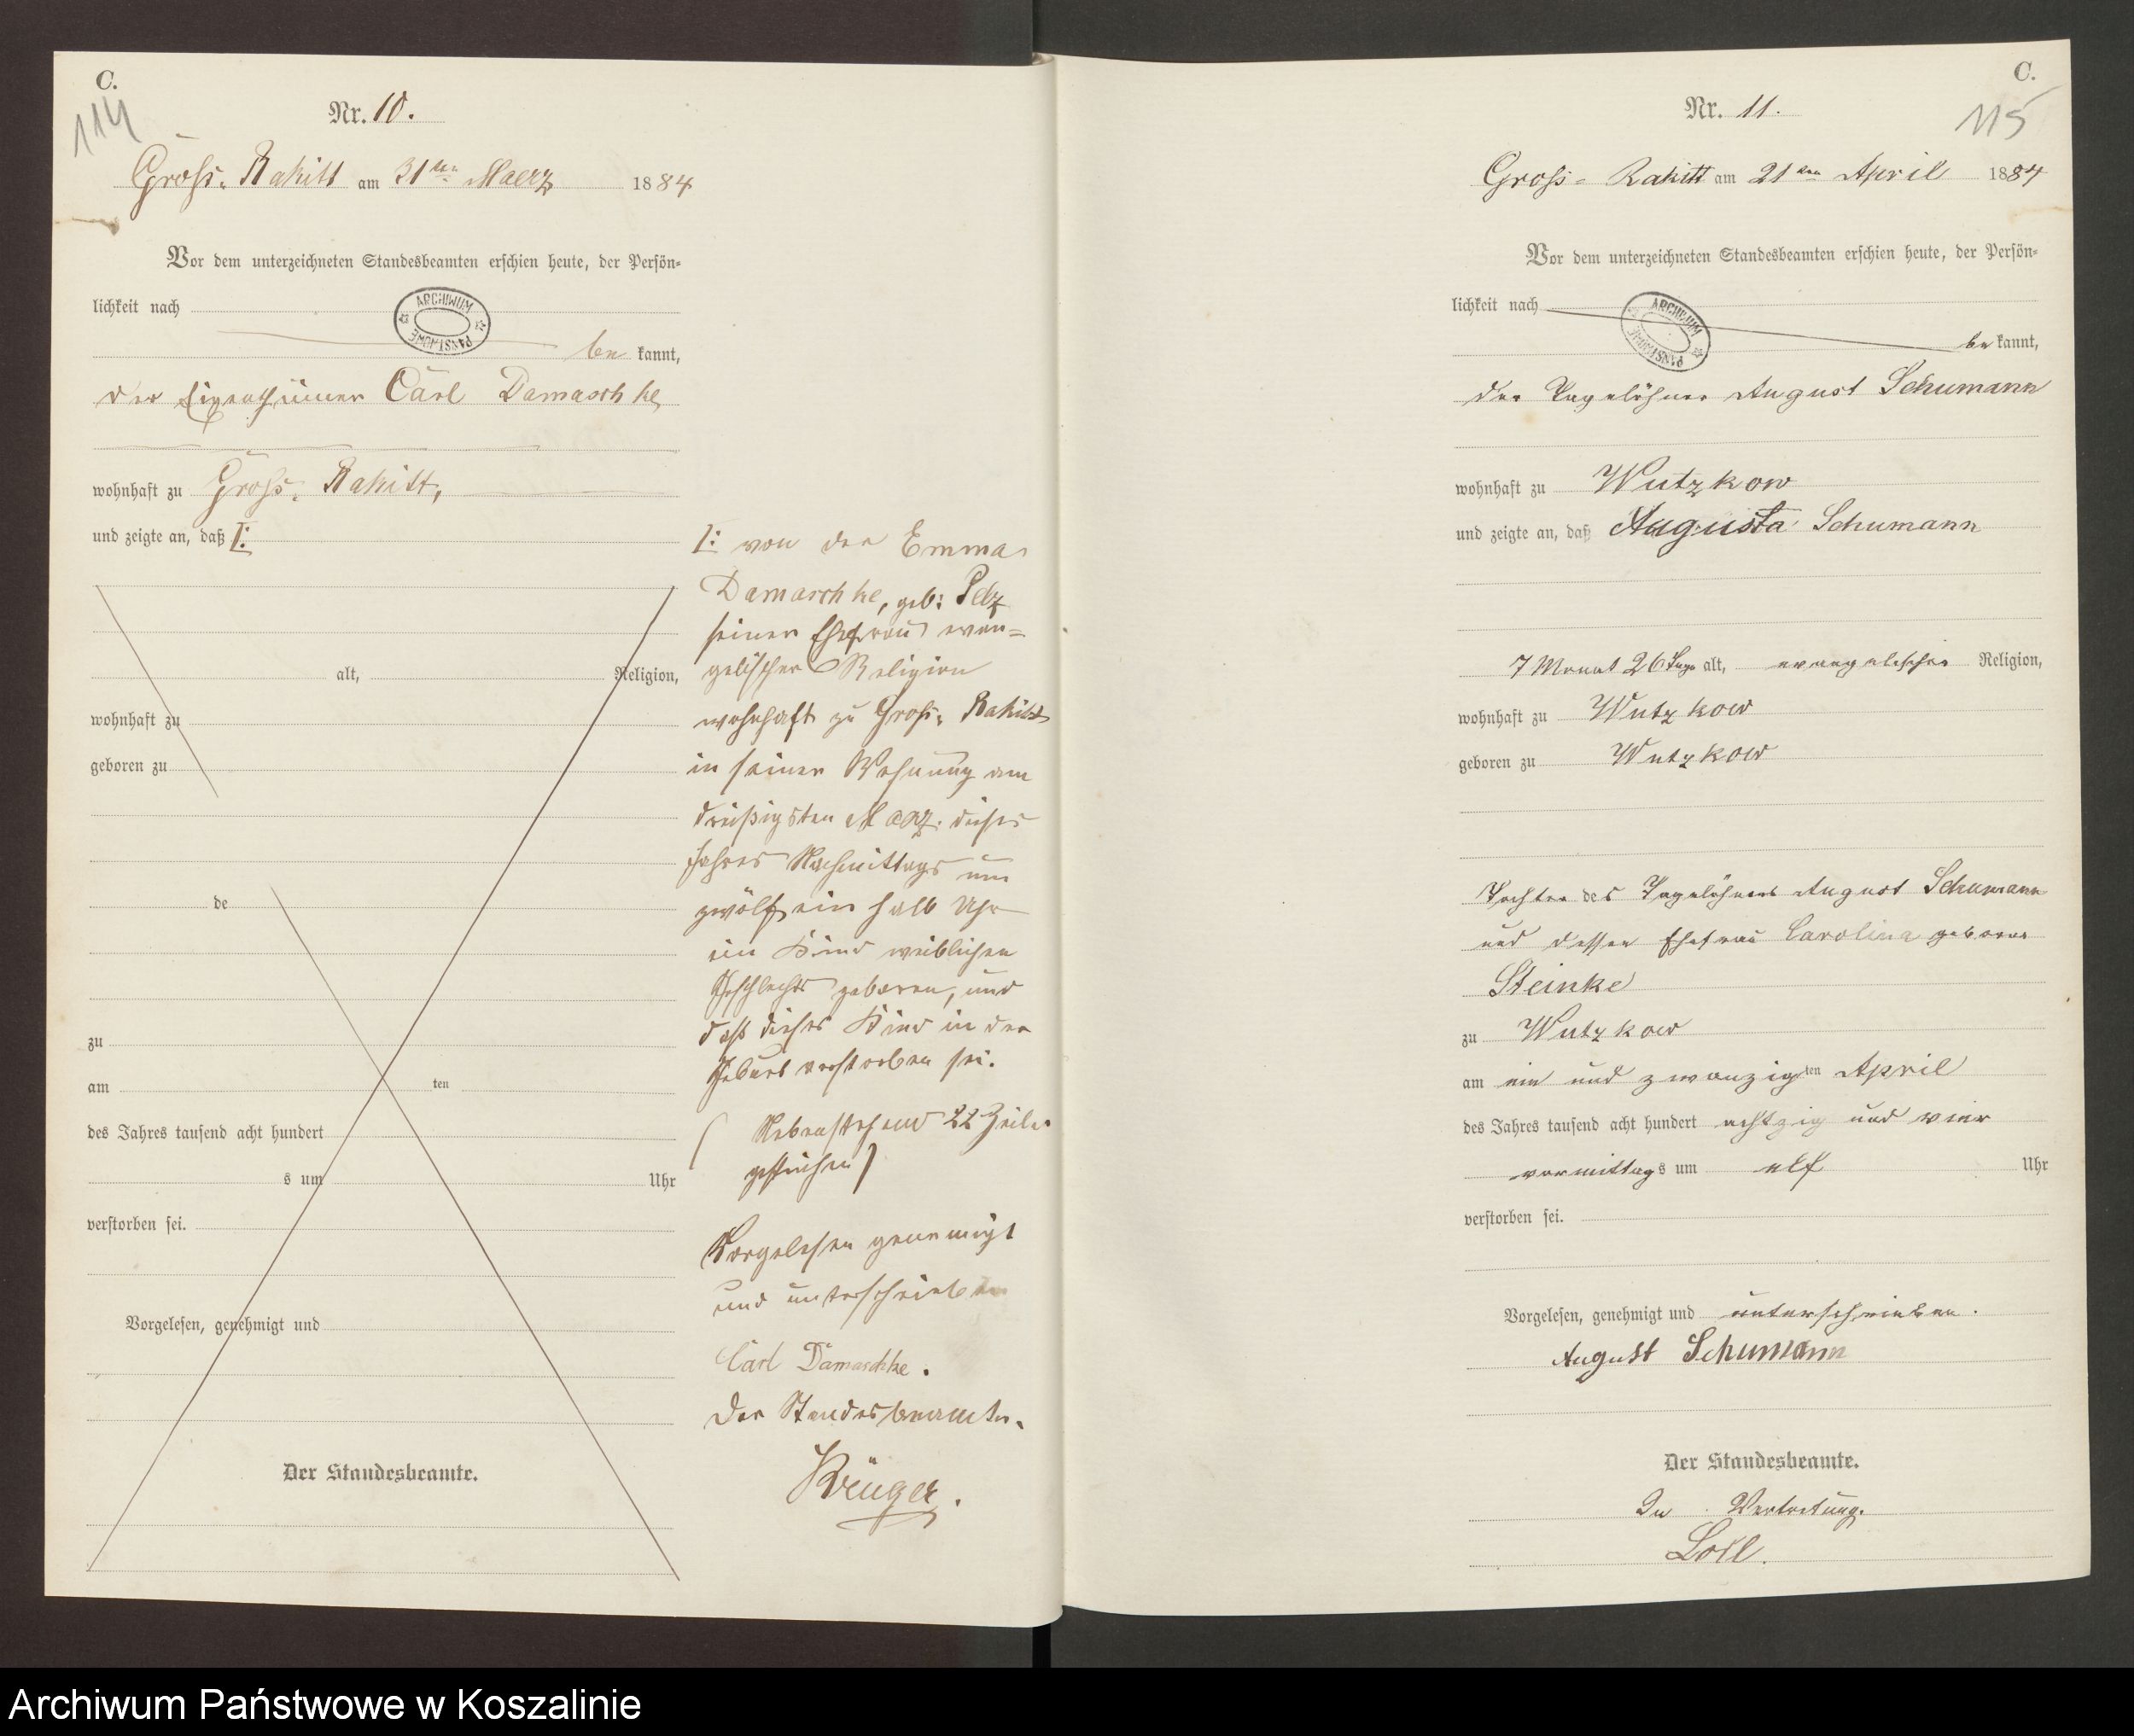 C.
114
Nr. 10.
Gross-Rakitt am 31ten Maerz 1884
Vor dem unterzeichneten Standesbeamten erschien heute, der Persön-
lichkeit nach
ARCHIWUM PAŃSTWOWE
be kannt,
der Eigenthümer Carl Damaschke
wohnhaft zu Gross-Rakitt,
und zeigte an, daß I:
alt, Religion,
wohnhaft zu
geboren zu
de
zu
am ten
des Jahres tausend acht hundert
s um Uhr
verstorben sei.
Vorgelesen, genehmigt und
Der Standesbeamte.
I: von der Emma
Damaschke, geb: Pelz
seiner Ehefrau evan-
gelischer Religion
wohnhaft zu Gross-Rakitt
in seiner Wohnung am
dreißigsten Maerz dieses
Jahres Nachmittags um
zwölf ein halb Uhr
ein Kind weiblichen
Geschlechts geboren, und
daß dieses Kind in der
Geburt verstorben sei.
(Nebenstehend 22 Zeilen
gestrichen)
Vorgelesen genemigt
und unterschrieben
Carl Damaschke.
Der Standesbeamte.
Krüger.
C.
115
Nr. 11.
Gross-Rakitt am 21ten April 1884
Vor dem unterzeichneten Standesbeamten erschien heute, der Persön-
lichkeit nach
ARCHIWUM PAŃSTWOWE
be kannt,
der Tagelöhner August Schumann
wohnhaft zu Wutzkow
und zeigte an, daß Augusta Schumann
7 Monat 26 Tage alt, evangelischer Religion,
wohnhaft zu Wutzkow
geboren zu Wutzkow
Tochter des Tagelöhners August Schumann
und dessen Ehefrau Carolina geborne
Steinke
zu Wutzkow
am ein und zwanzigten April
des Jahres tausend acht hundert achtzig und vier
vormittags um elf Uhr
verstorben sei.
Vorgelesen, genehmigt und unterschrieben.
August Schumann
Der Standesbeamte.
In Vertretung.
Loll.
Archiwum Państwowe w Koszalinie